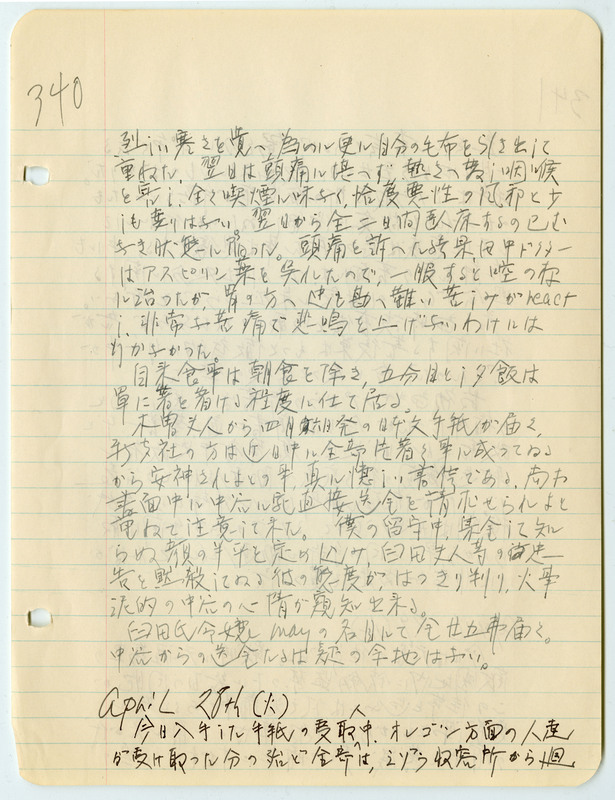 340
烈しい寒さを覚へ、為めに更に自分の毛布を引き出して
重ねた。翌日は頭痛に堪へず、熱さへ費し咽喉
を害し、全く喫煙に味なく、恰度悪性の風邪と少
しも変りはない。翌日から全二日間臥床するの已む
なき状態に陥った。頭痛を訴へた結果、田中ドクター
はアスピリン薬を呉れたので、一服すると嘘の如
に治ったが、胃の方へ迚も堪へ難い苦しみがreact
し、非常な苦痛で悲鳴を上げないわけには
行かなかった。
目来食事は朝食を除き、五分目とし夕飯は
単に箸を着ける程度に仕て居る。
木曽夫人から四月六日発の日本文手紙が届く、
社の方は近日中に全部片着く事に成ってゐる
から安神されよとの事、真に憶しい書信である。尚お
書面中に中 に直接送金を請求せられよと
重ねて注意して来た。 僕の留守中、集金して知
らぬ顔の半兵を定め込み、臼田夫人等の 忠
告を黙殺してゐる彼の態度が、はっきり判り、火事
泥的の中 の心情が窺知出来る。
臼田氏令嬢 Mayの名目にて金廿五弗届く。
中 からの送金なるは疑の余地はない。
April 28th (火)
今日入手した手紙の受取人中、オレゴン方面の人達
が受け取った分の殆ど全部は、ミゾラ収容所から廻